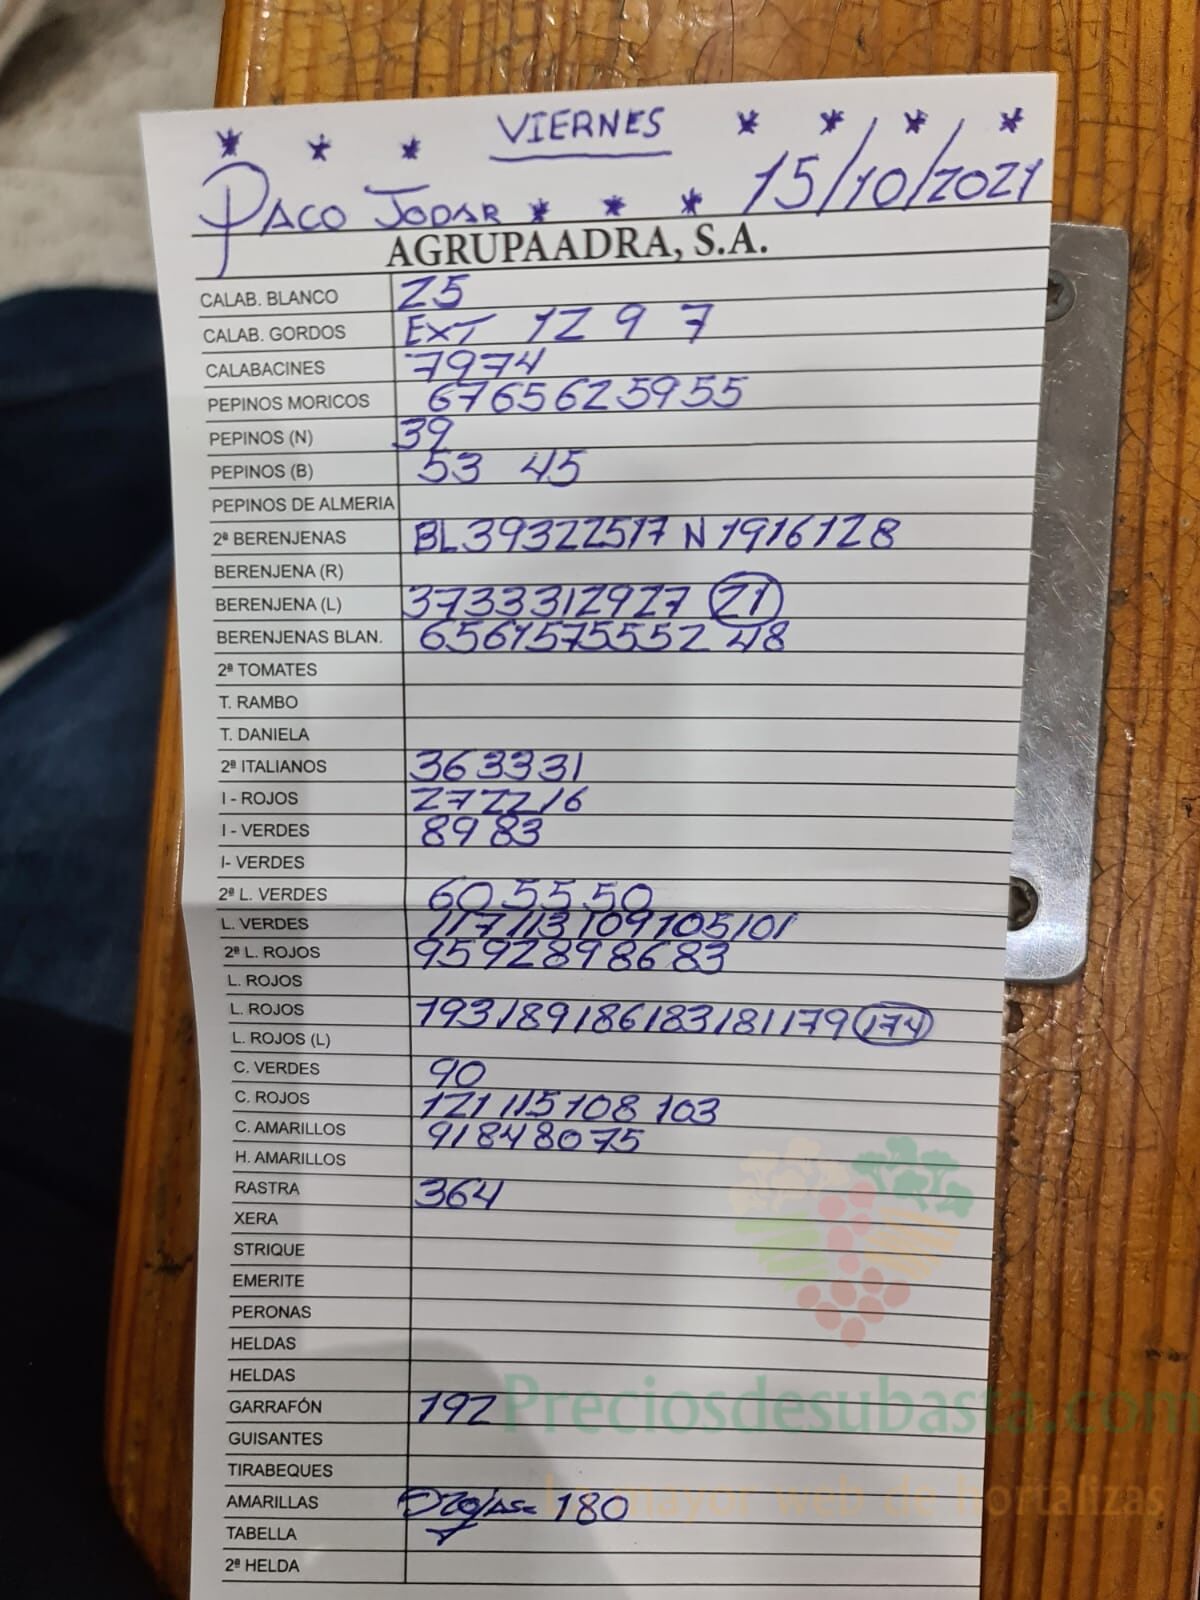 * * * VIERNES * * * *
PACO JODAR * * * 15/10/2021
AGRUPAADRA, S.A.
CALAB. BLANCO 25
CALAB. GORDOS EXT 12 9 7
CALABACINES 7974
PEPINOS MORICOS 6765625955
PEPINOS (N) 39
PEPINOS (B) 53 45
PEPINOS DE ALMERIA
2ª BERENJENAS BL39322517 N 1916128
BERENJENA (R)
BERENJENA (L) 3733312927 21
BERENJENAS BLAN. 6561575552 48
2ª TOMATES
T. RAMBO
T. DANIELA
2ª ITALIANOS 363331
I - ROJOS 272216
I - VERDES 89 83
I- VERDES
2ª L. VERDES 60 55 50
L. VERDES 117113109105101
2ª L. ROJOS 9592898683
L. ROJOS
L. ROJOS 193189186183181179 174
L. ROJOS (L)
C. VERDES 90
C. ROJOS 121 115 108 103
C. AMARILLOS 91848075
H. AMARILLOS
RASTRA 364
XERA
STRIQUE
EMERITE
PERONAS
HELDAS
HELDAS
GARRAFÓN 192
GUISANTES
TIRABEQUES
AMARILLAS 180
TABELLA
2ª HELDA
Preciosdesubasta.com
La mayor web de hortalizas